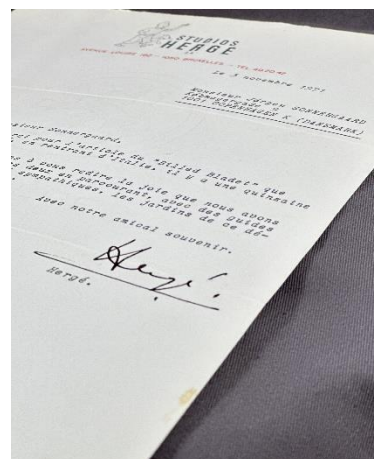 STUDIOS
HERGÉ
AVENUE LOUISE 162 - 1050 BRUXELLES - TEL.
Le 3 novembre 1971
Monsieur Jørgen SONNERGAARD
1001 COPENHAGEN K (DANEMARK)
sieur Sonnergaard,
rci pour l'article du "Billed Bladet" que
en rentrant d'Italie, il y a une quinzaine
s à vous redire la joie que nous avons
deux en parcourant, avec des guides
sympathiques, les jardins de ce dé-
Avec notre amical souvenir.
Hergé.
Hergé.